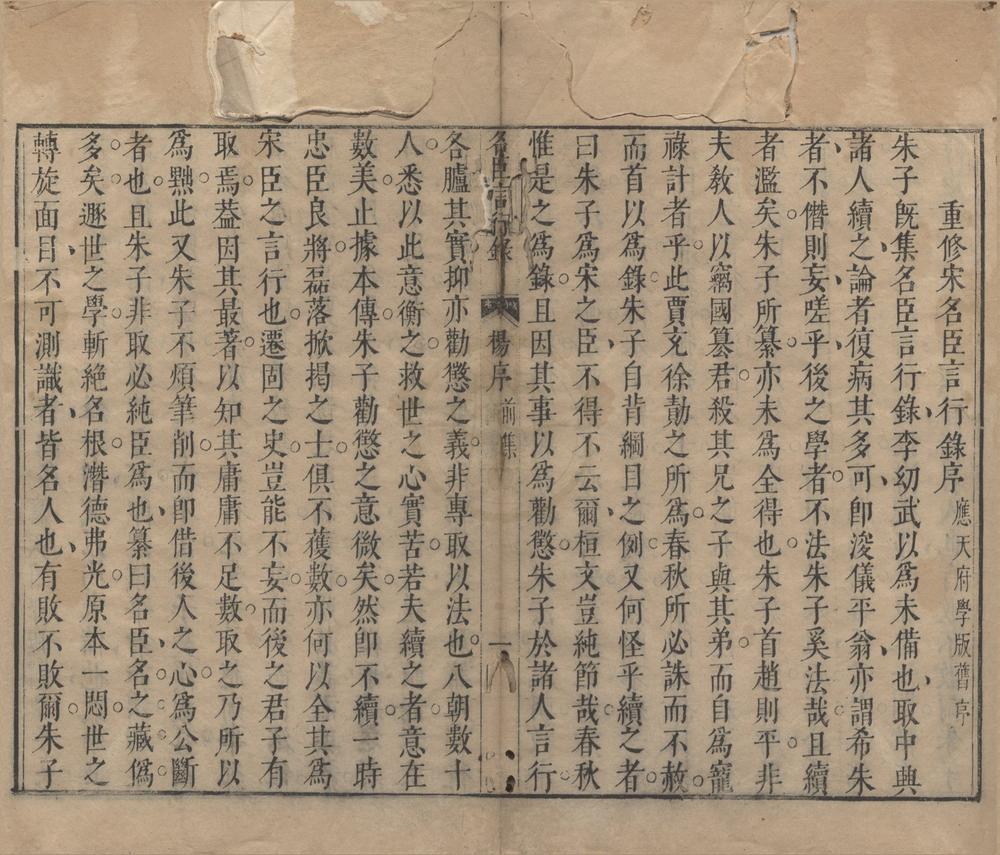 重修宋名臣言行錄序應天府學版舊序
朱子旣集名臣言行錄李幼武以爲未備也取中興
諸人續之論者復病其多可卽浚儀平翁亦謂希朱
者不僭則妄嗟乎後之學者不法朱子奚法哉且續
者濫矣朱子所纂亦未爲全得也朱子首趙則平非
夫敎人以竊國簒君殺其兄之子與其弟而自爲寵
祿計者乎此賈充徐勣之所爲春秋所必誅而不赦
而首以爲錄朱子自背綱目之例又何怪乎續之者
曰朱子爲宋之臣不得不云爾桓文豈純節哉春秋
惟是之爲錄且因其事以爲勸懲朱子於諸人言行
名臣言行錄 楊序 前集 一
各臚其實抑亦勸懲之義非專取以法也八朝數十
人悉以此意衡之救世之心實苦若夫續之者意在
數美止據本傳朱子勸懲之意微矣然卽不續一時
忠臣良將磊落掀揭之士俱不獲數亦何以全其爲
宋臣之言行也遷固之史豈能不妄而後之君子有
取焉葢因其最著以知其庸庸不足數取之乃所以
爲㸃此又朱子不煩筆削而卽借後人之心爲公斷
者也且朱子非取必純臣爲也纂曰名臣名之藏僞
多矣遯世之學斬絶名根潛德弗光原本一悶世之
轉旋面目不可測識者皆名人也有敗不敗爾朱子